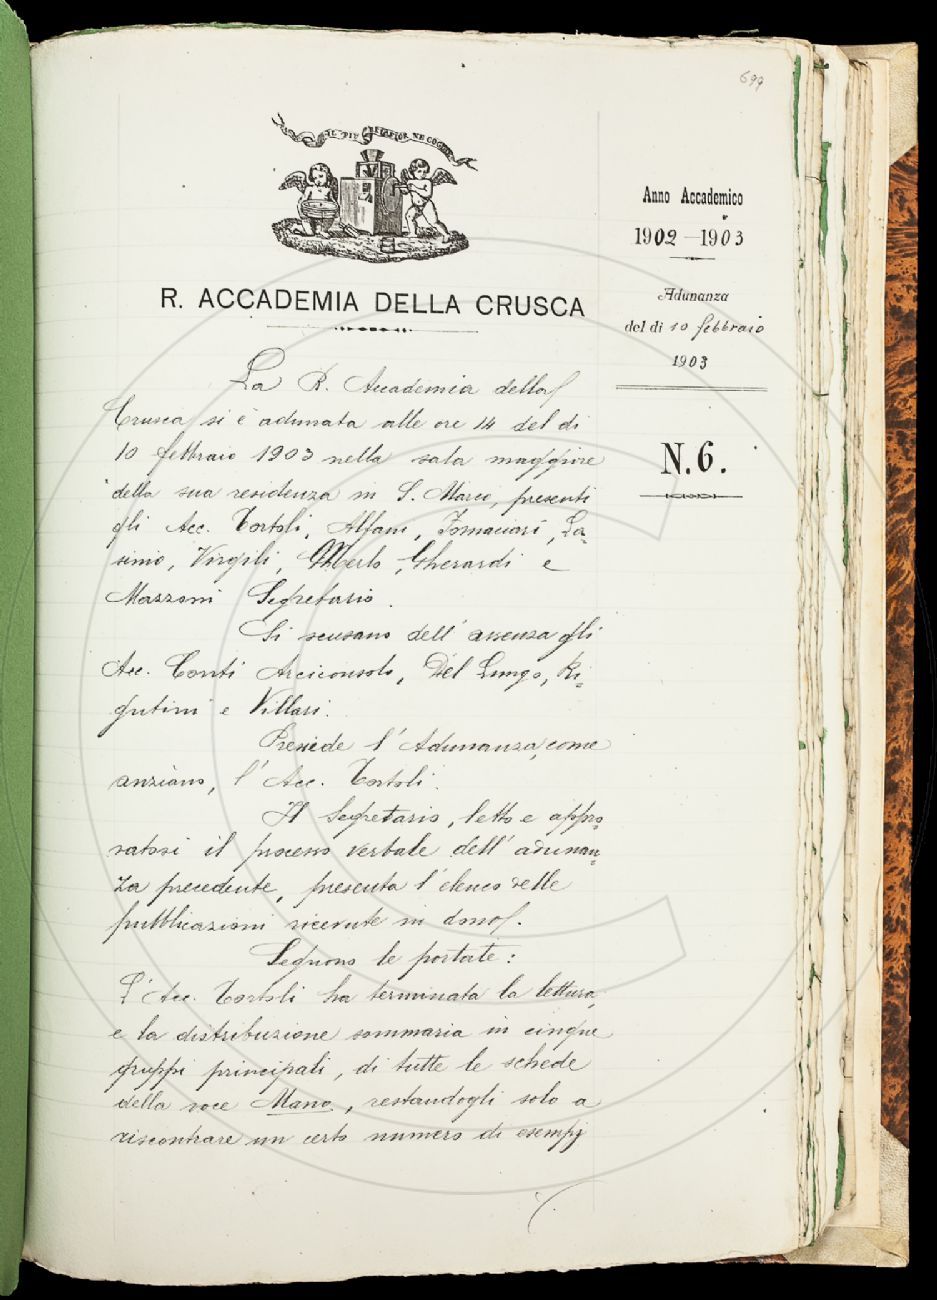 699
IL PIÙ BEL FIOR NE COGLIE
R. ACCADEMIA DELLA CRUSCA
Anno Accademico
1902-1903
Adunanza
del dì 10 febbraio
1903
N. 6.
La R. Accademia della
Crusca si è adunata alle ore 14 del dì
10 febbraio 1903 nella sala maggiore
della sua residenza in S. Marco, presenti
gli Acc. Tortoli, Alfani, Fornaciari, La=
sinio, Virgili, Gherardi e
Mazzoni Segretario.
Si scusano dell'assenza gli
Acc. Conti Arciconsolo, Del Lungo, Ri=
gutini e Villari.
Presiede l'Adunanza, come
anziano, l'Acc. Tortoli.
Il Segretario, letto e appro=
vatosi il processo verbale dell'adunan=
za precedente, presenta l'elenco delle
pubblicazioni ricevute in dono.
Seguono le portate:
L'Acc. Tortoli ha terminata la lettura,
e la distribuzione sommaria in cinque
gruppi principali, di tutte le schede
della voce Mano, restandogli solo a
riscontrare un certo numero di esempj